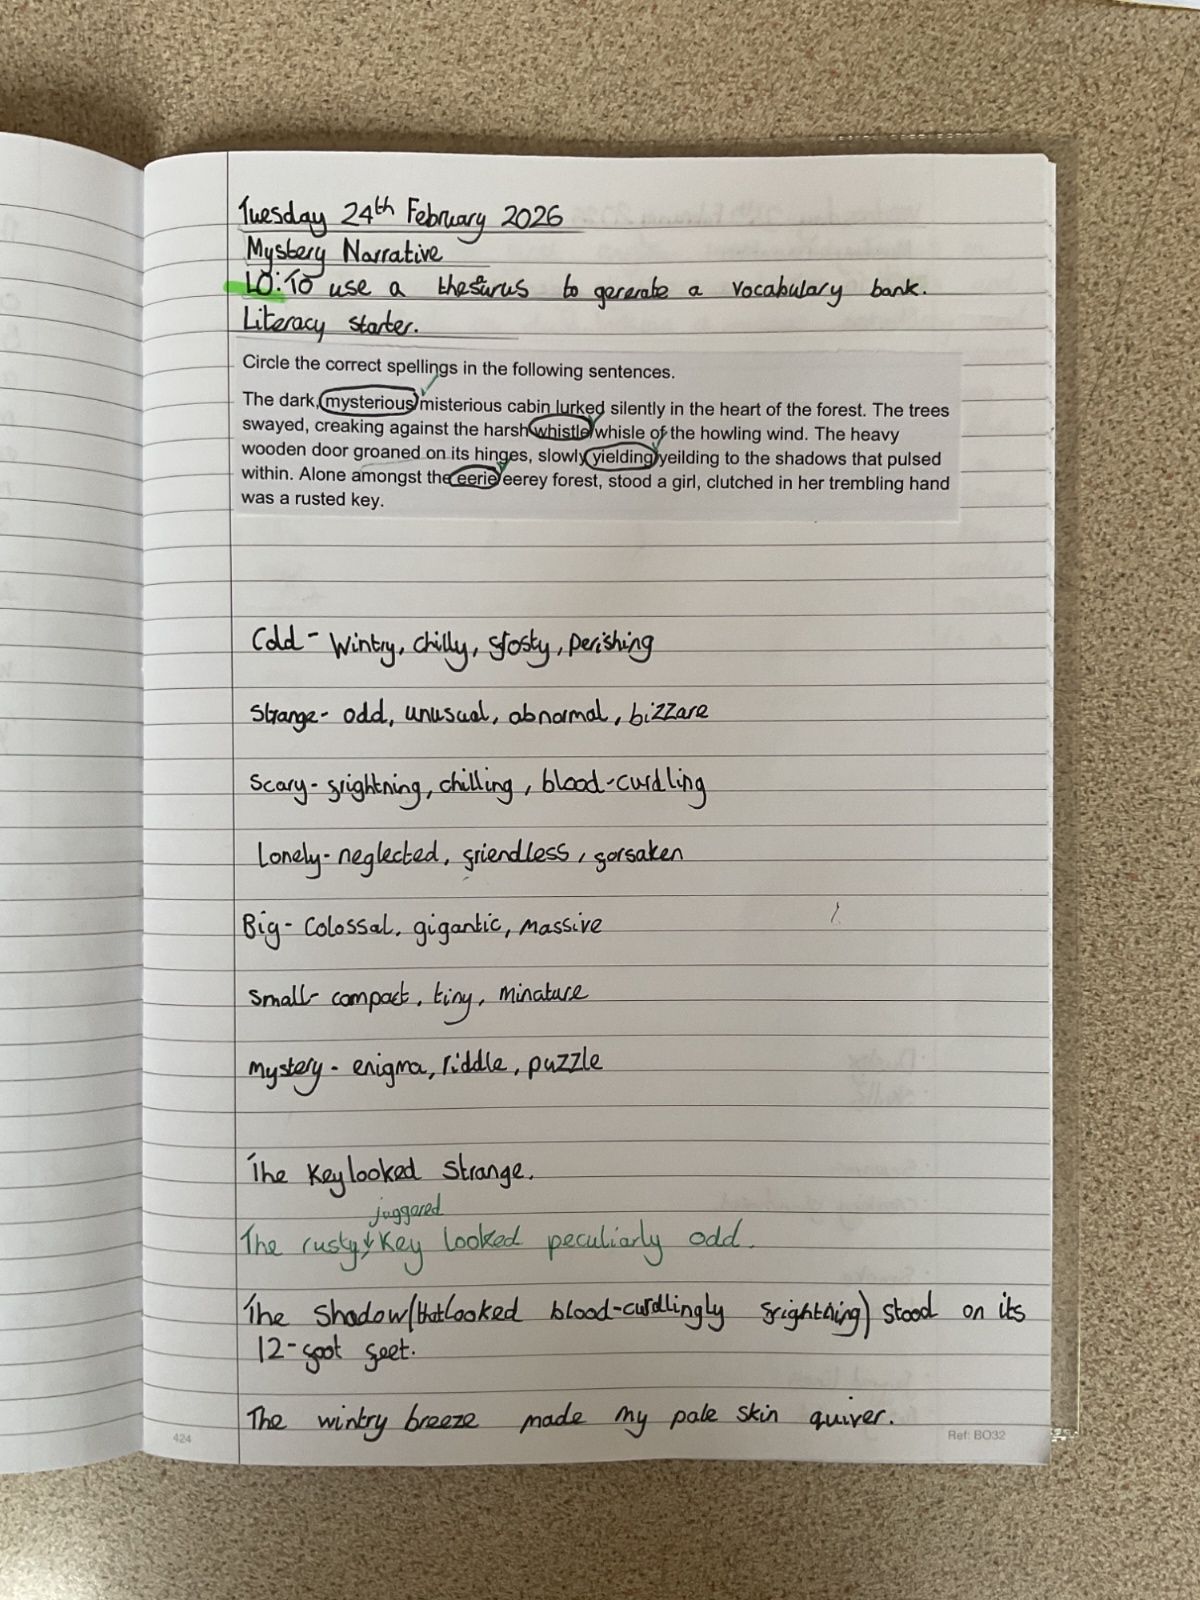 Tuesday 24th February 2026
Mystery Narrative
LO: To use a thesurus to generate a vocabulary bank.
Literacy starter.
Circle the correct spellings in the following sentences.
The dark, mysterious/misterious cabin lurked silently in the heart of the forest. The trees
swayed, creaking against the harsh whistle/whisle of the howling wind. The heavy
wooden door groaned on its hinges, slowly yielding/yeilding to the shadows that pulsed
within. Alone amongst the eerie/eerey forest, stood a girl, clutched in her trembling hand
was a rusted key.
Cold - wintry, chilly, frosty, perishing
Strange - odd, unusual, abnormal, bizzare
Scary - frightning, chilling, blood-curdling
Lonely - neglected, friendless, forsaken
Big - colossal, gigantic, massive
Small - compact, tiny, minature
Mystery - enigma, riddle, puzzle
The key looked strange.
juggared
The rusty, key looked peculiarly odd.
The shadow (that looked blood-curdlingly frightning) stood on its
12-foot feet.
The wintry breeze made my pale skin quiver.
424
Ref: BO32